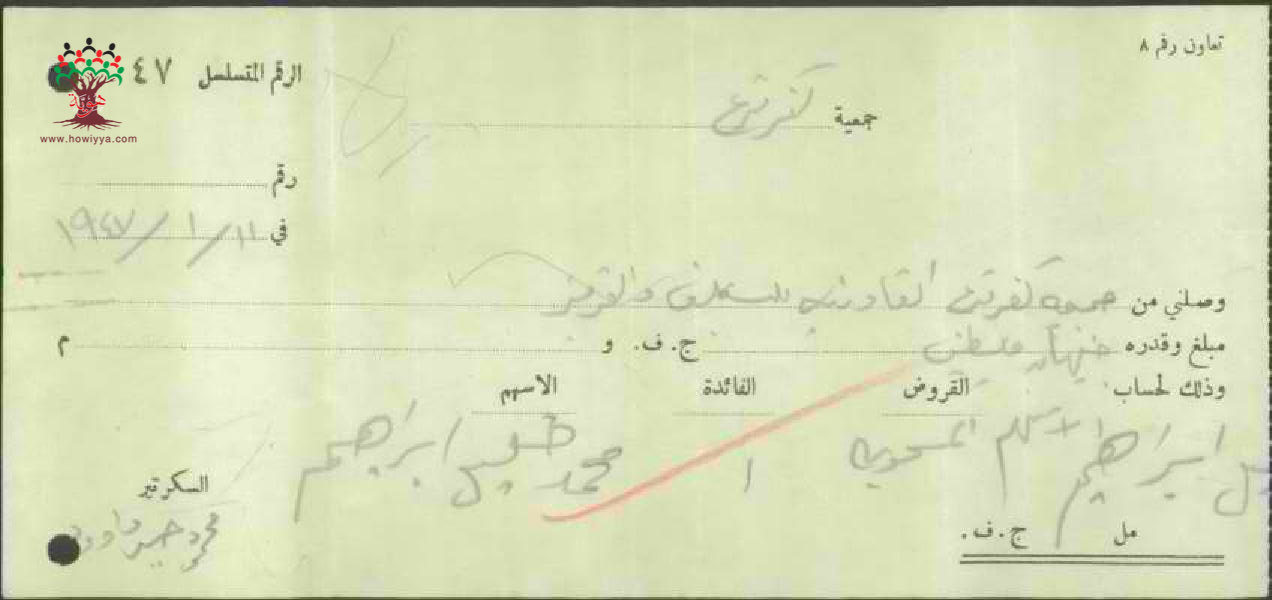 تعاون رقم ٨
الرقم المتسلسل ٤٧
www.howiyya.com
جمعية كفرقرع
رقم
في ١١ / ١ / ١٩٤٧
وصلني من جمعية كفرقرع التعاونية للتسليف والتوفير
مبلغ وقدره جنيهان فلسطيني ج . ف . و م
وذلك لحساب القروض الفائدة الاسهم
ابراهيم الاسهم
محمد خليل ابراهيم
السكرتير
محمد
مل ج . ف .